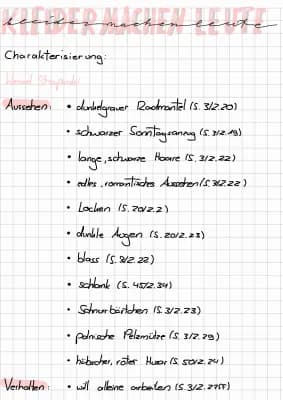 KLEIDER MACHEN LEUTE
kleider machen leute
Charakterisierung:
Wenzel Strapinski
Aussehen: • dunkelgrauer Radmantel (S. 3/Z.20)
• schwarzer Sonntagsanzug (S. 3/Z.19)
• lange, schwarze Haare (S. 3/Z.22)
• edles, romantisches Aussehen (S. 3/Z.22)
• Locken (S. 20/Z.2)
• dunkle Augen (S. 20/Z.23)
• blass (S. 8/Z.22)
• schlank (S. 45/Z.34)
• Schnurrbärtchen (S. 3/Z.23)
• polnische Pelzmütze (S. 3/Z.29)
• hübscher, roter Husar (S. 50/Z.24)
Verhalten: • will alleine arbeiten (S. 3/Z.27ff)